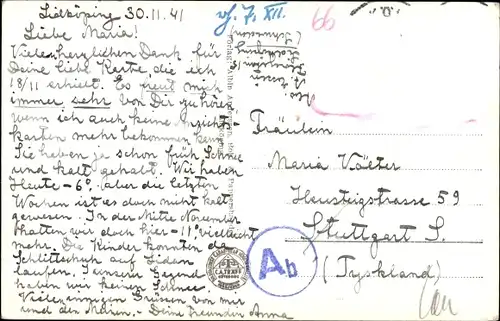 Lidköping 30.11.41
Liebe Maria!
Vielen herzlichen Dank für
Deine liebe Karte, die ich
18/11 erhielt. Es freut mich
immer sehr von Dir zu hören
wenn ich auch keine Ansichts-
karten mehr bekommen kann.
Sie haben ja schon früh Schnee
und kalt gehabt. Wir haben
Heute -6°, aber die letzten
Wochen ist es doch nicht kalt
gewesen. In der Mitte November
hatten wir doch hier -11°, vielleicht
mehr. Die Kinder konnten da
Schlittschuh auf Lidan
laufen. In unserer Gegend
haben wir keinen Schnee.
Viele innigen Grüssen von mir
und den Meinen. Deine Freundin Anna
7. XII.
66
Lidköping
(Schweden)
Fräulein
Maria Vöeter
Heusteigstrasse 59
Stuttgart S.
(Tyskland)
Ab